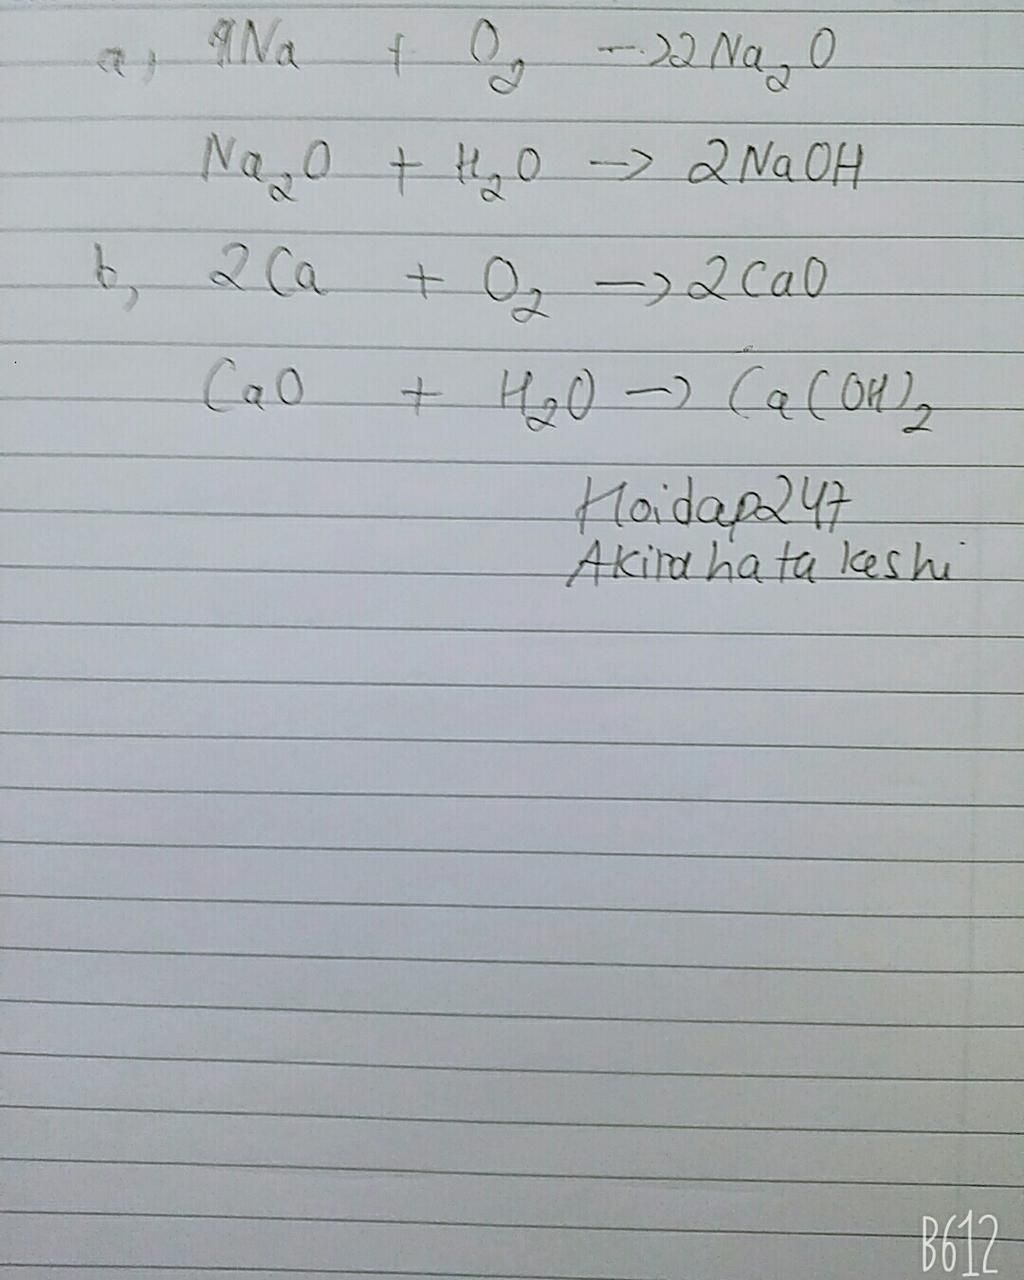 a, 4Na + O₂ → 2Na₂O
Na₂O + H₂O → 2NaOH
b, 2Ca + O₂ → 2CaO
CaO + H₂O → Ca(OH)₂
Hoidap247
Akira hatakeshi
B612